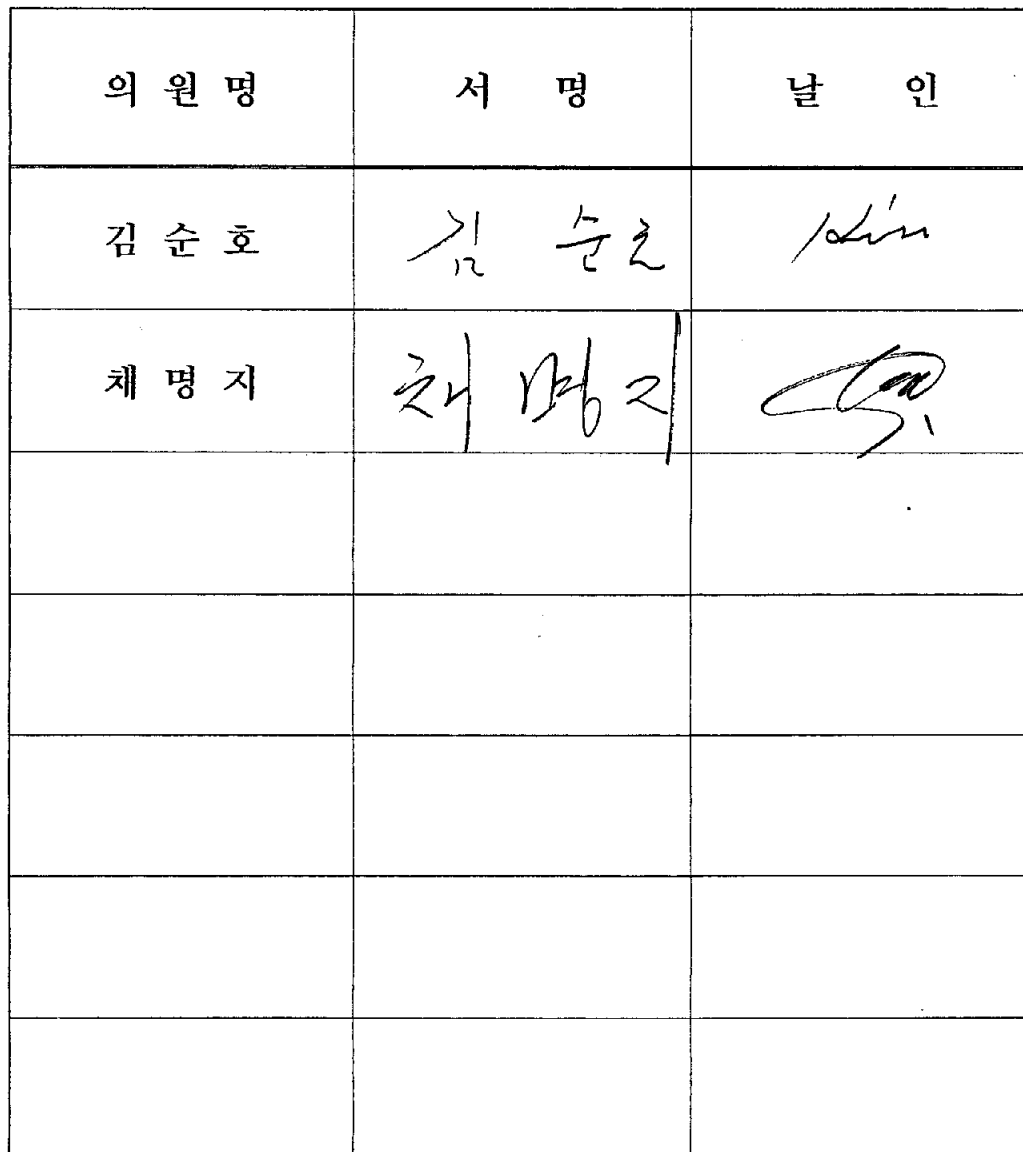 의 원 명 서 명 날 인
김 순 호 김 순호 Kim
채 명 지 채 명지